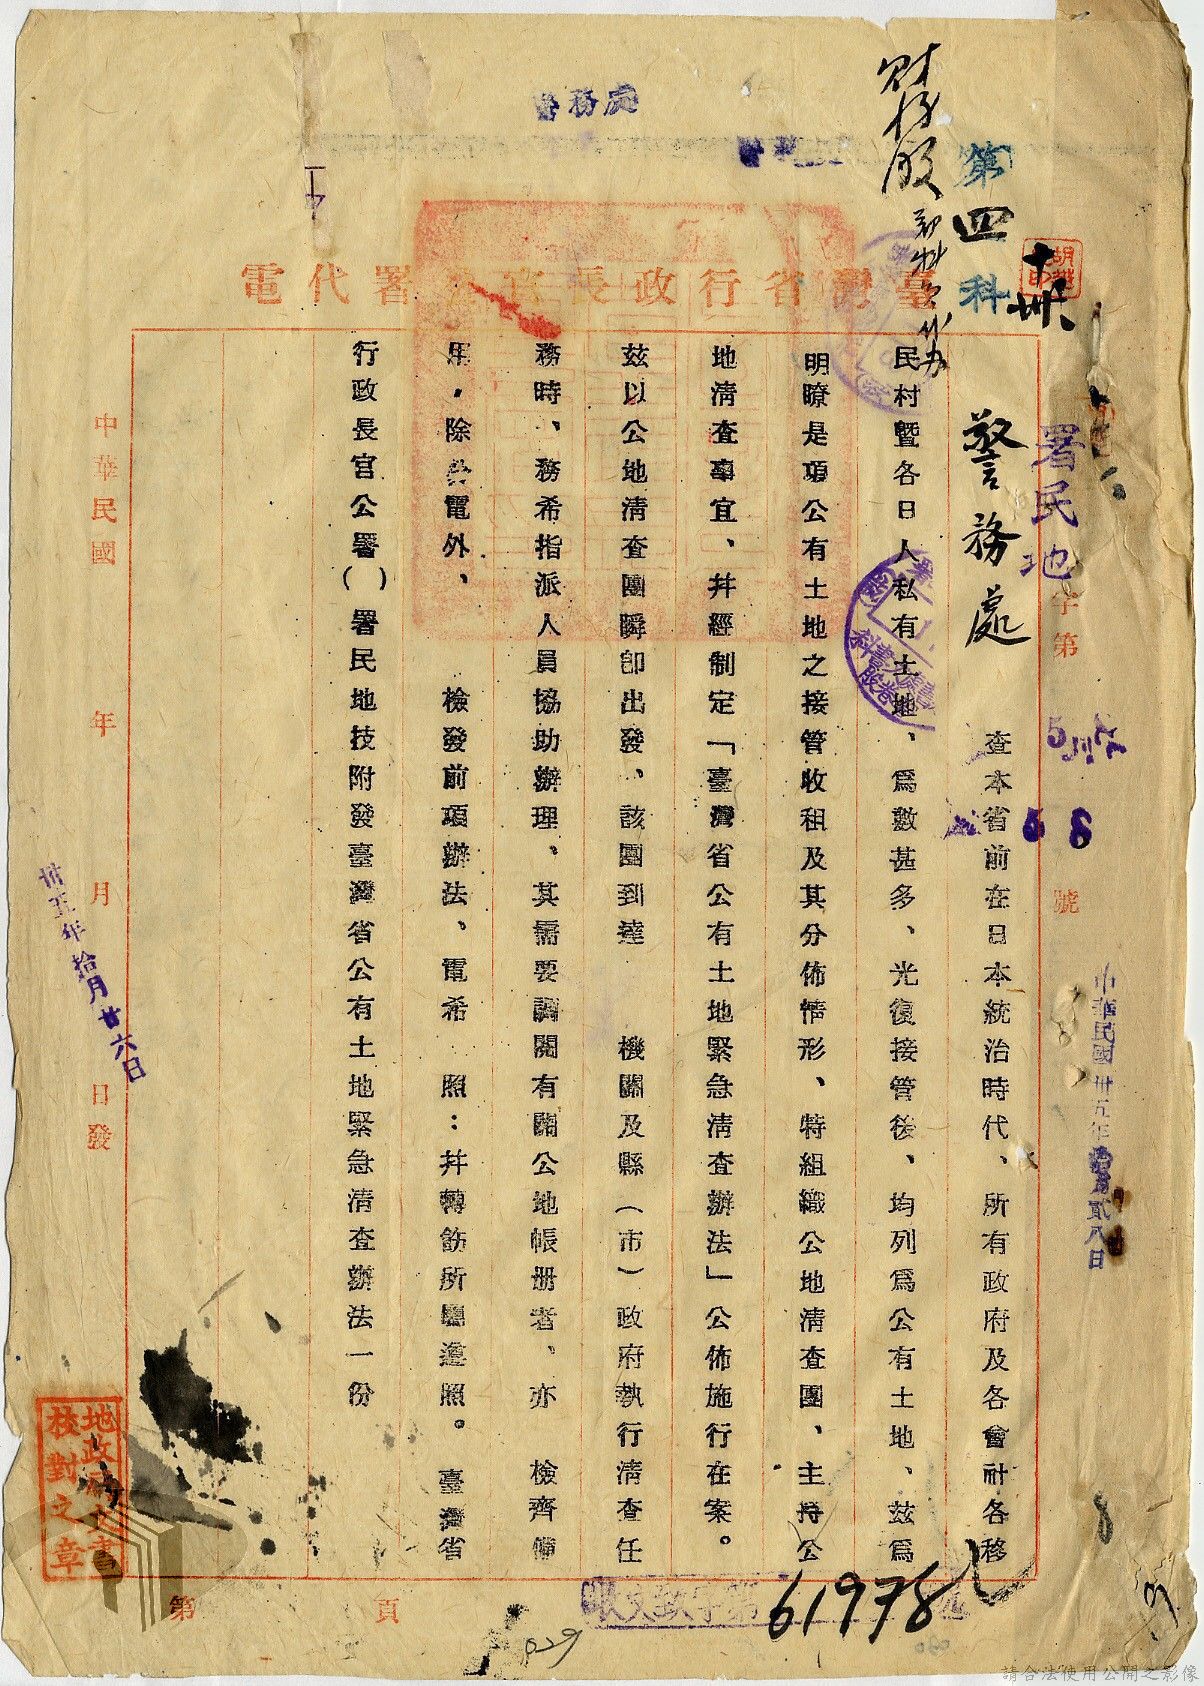 財務股
第四科
臺灣省行政長官公署代電
署民地字第 號
中華民國卅五年拾月貳八日
警務處
查本省前在日本統治時代、所有政府及各會社各移
民村曁各日人私有土地、為數甚多、光復接管後、均列為公有土地、茲為
明瞭是項公有土地之接管收租及其分佈情形、特組織公地清查團、主持公
地清查事宜、幷經制定「臺灣省公有土地緊急清查辦法」公佈施行在案。
茲以公地清查團瞬卽出發、該團到達 機關及縣(市)政府執行清查任
務時、務希指派人員協助辦理、其需要調閱有關公地帳册者、亦 檢齊備
用,除分電外、 檢發前項辦法、電希 照:幷轉飭所屬遵照。 臺灣省
行政長官公署( )署民地技附發臺灣省公有土地緊急清查辦法一份
中華民國 年 月 日發
卅五年拾月廿六日
地政局文書
校對之章
第 頁
收文致字第61978
029
請合法使用公開之影像